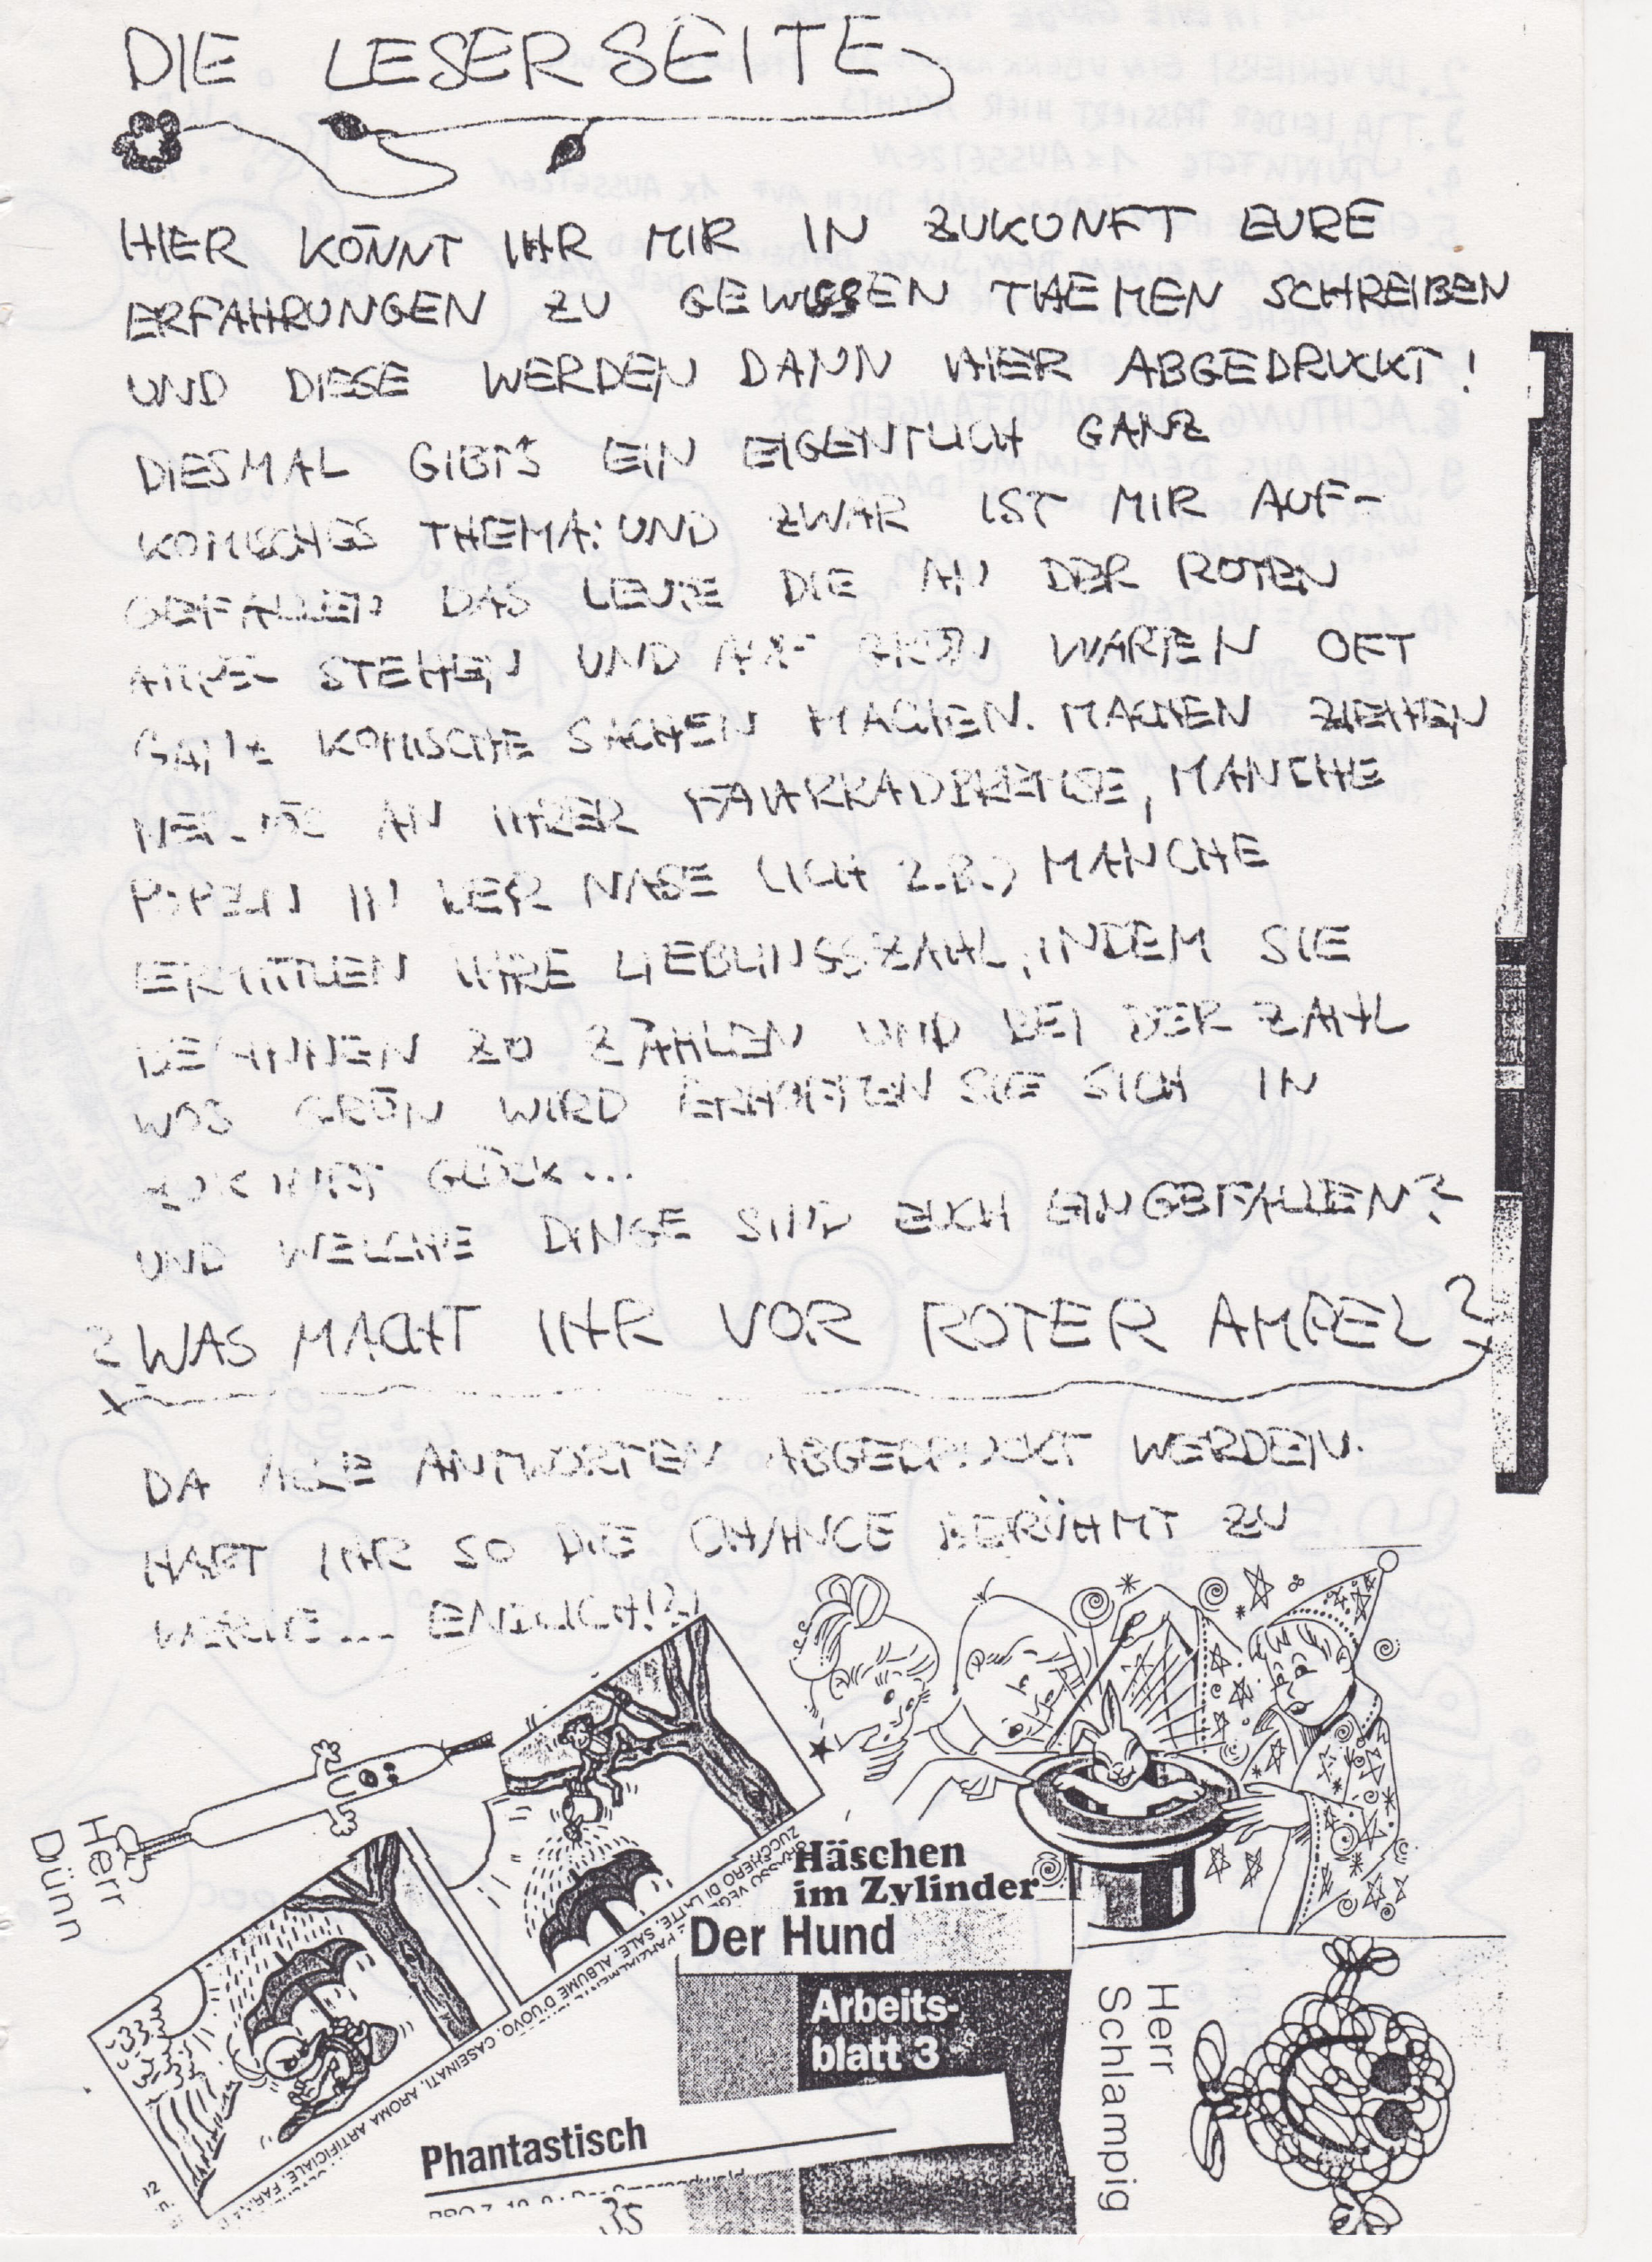 DIE LESERSEITE
HIER KÖNNT IHR MIR IN ZUKUNFT EURE
ERFAHRUNGEN ZU GEWISSEN THEMEN SCHREIBEN
UND DIESE WERDEN DANN HIER ABGEDRUCKT!
DIESMAL GIBT'S EIN EIGENTLICH GANZ
KOMISCHES THEMA: UND ZWAR IST MIR AUF-
GEFALLEN DAS LEUTE DIE AN DER ROTEN
AMPEL STEHEN UND AUF GRÜN WARTEN OFT
GANZ KOMISCHE SACHEN MACHEN. MACHEN ZIEHEN
AN IHRER FAHRRADBREMSE, MANCHE
POPELN IN DER NASE (ICH Z.B.) MANCHE
ERMITTLEN IHRE LIEBLINGSZAHL, INDEM SIE
BEGINNEN ZU ZÄHLEN UND BEI DER ZAHL
WOS GRÜN WIRD ERHOFFEN SIE SICH IN
ZUKUNFT GLÜCK...
UND WELCHE DINGE SIND EUCH EINGEFALLEN?
? WAS MACHT IHR VOR ROTER AMPEL?
DA ALLE ANTWORTEN ABGEDRUCKT WERDEN.
HABT IHR SO DIE CHANCE BERÜHMT ZU
... ENDLICH!?!
Herr
Dünn
ZUCCHERO DI LATTE, SALE, ALBUME D'UOVO, CASEINATI, AROMA ARTIFICIALE, FARINA
Häschen
im Zylinder
Der Hund
Arbeits-
blatt 3
Phantastisch
35
Herr
Schlampig